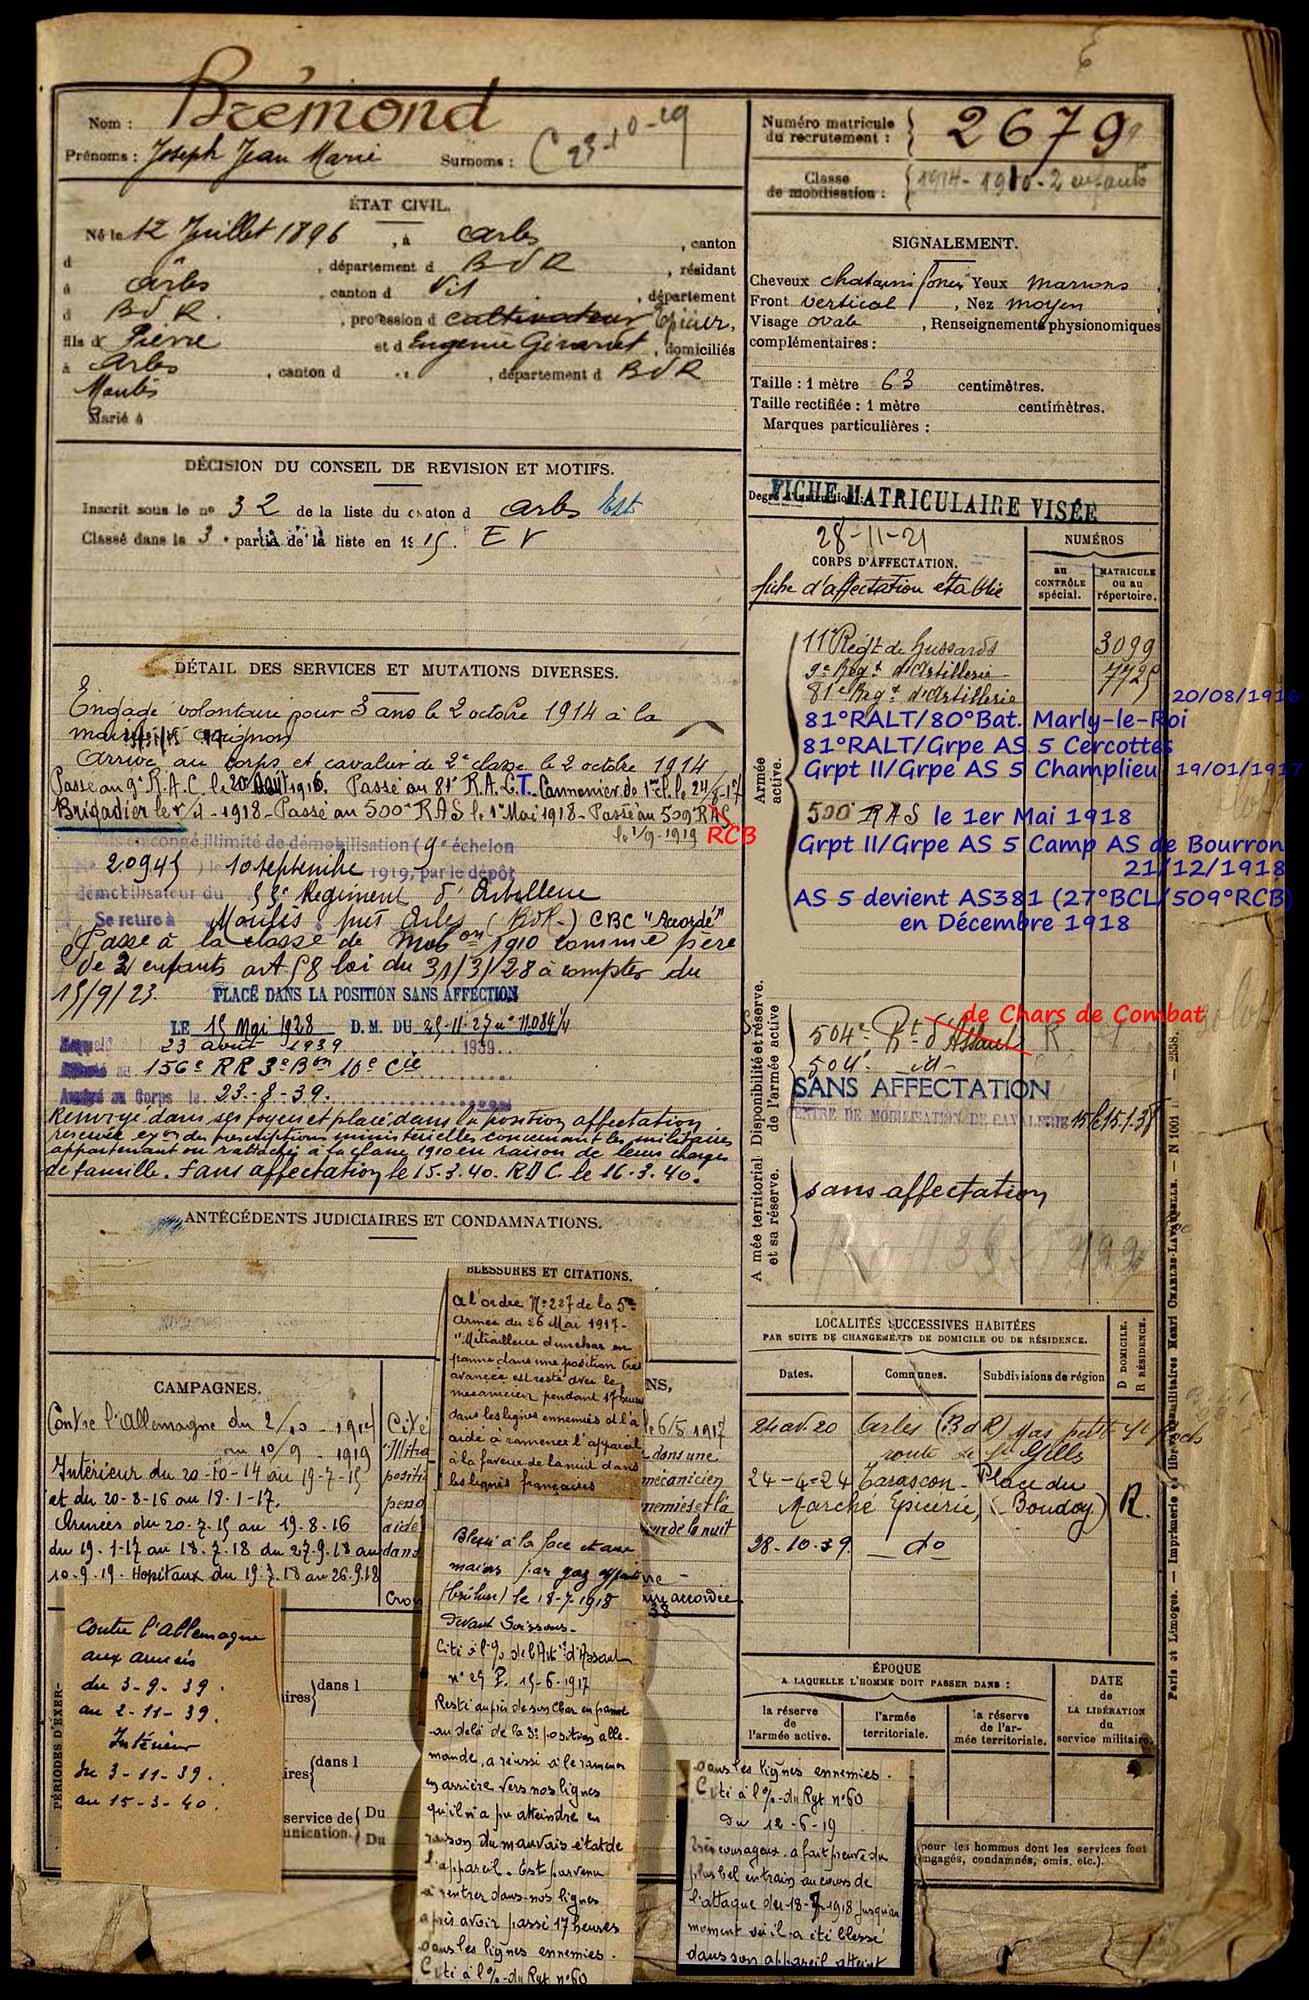 Nom : Brémond
Prénoms : Joseph Jean Marie Surnoms : C 23-10-19
Numéro matricule du recrutement : 2679
Classe de mobilisation : 1914 - 1910 - 2 enfants
ÉTAT CIVIL.
Né le 12 Juillet 1896, à Arles, canton
d , département d BdR, résidant
à Arles, canton d , département
d BdR., profession d cultivateur Epicier,
fils d Pierre et d Eugenie , domiciliés
à Arles, canton d , département d BdR
Moulés
Marié à
SIGNALEMENT.
Cheveux chatains foncés Yeux marrons,
Front vertical, Nez moyen
Visage ovale, Renseignements physionomiques
complémentaires :
Taille : 1 mètre 63 centimètres.
Taille rectifiée : 1 mètre centimètres.
Marques particulières :
DÉCISION DU CONSEIL DE REVISION ET MOTIFS.
Inscrit sous le nº 32 de la liste du canton d Arles Est
Classé dans la 3e partie de la liste en 1915. EV
FICHE MATRICULAIRE VISÉE
28-11-21
CORPS D'AFFECTATION.
fiche d'affectation établie
NUMÉROS
au CONTRÔLE spécial.
MATRICULE ou au répertoire.
DÉTAIL DES SERVICES ET MUTATIONS DIVERSES.
Engagé volontaire pour 3 ans le 2 octobre 1914 à la
mairie d'Avignon
Arrivé au corps et cavalier de 2e classe le 2 octobre 1914
Passé au 9e R.A.C. le 20 Août 1916. Passé au 81e R.A.L.T. Cannonier de 1ere cl. le 24/5-17
Brigadier le 1/4-1918 - Passé au 500e RAS le 1er Mai 1918 - Passé au 509 RAS
le 1/9-1919 RCB
Mis en congé illimité de démobilisation (9e échelon
20945) le 10 septembre 1919, par le dépôt
démobilisateur du 55e Régiment d'Artillerie
Se retire à Moulés près Arles (BdR.) CBC "Accordé"
Passé à la classe de Mobon 1910 comme père
de 2 enfants art 58 loi du 31/3/28 à compter du
15/9/23. PLACÉ DANS LA POSITION SANS AFFECTION
LE 15 Mai 1928 D.M. DU 25-11-27 nº 11084 1/4
23 août 1939 1939
156e RR 3e Bon 10e Cie
Arrivé au Corps le 23-8-39.
Renvoyé dans ses foyers et placé dans la position affectation
réservée exon des prescriptions ministérielles concernant les militaires
appartenant ou rattachés à la classe 1910 en raison de leurs charges
de famille. Sans affectation le 15.3.40. RDC. le 16.3.40.
Armée active.
11e Régt de hussards 3099
9e Régt d'Artillerie 7725
81e Régt d'Artillerie
20/08/1916
81°RALT/80°Bat. Marly-le-Roi
81°RALT/Grpe AS 5 Cercottes
Grpt II/Grpe AS 5 Champlieu 19/01/1917
500e RAS le 1er Mai 1918
Grpt II/Grpe AS 5 Camp AS de Bourron
21/12/1918
AS 5 devient AS381 (27°BCL/509°RCB)
en Décembre 1918
Disponibilité et réserve de l'armée active
de Chars de Combat
504e Rt d'Assaut R
504e id-
SANS AFFECTATION
CENTRE DE MOBILISATION DE CAVALERIE 15 le 15.1.38
Armée territorial et sa réserve.
sans affectation
ANTÉCÉDENTS JUDICIAIRES ET CONDAMNATIONS.
BLESSURES ET CITATIONS.
A l'ordre Nº 227 de la 5me
Armée du 26 Mai 1917 -
"Mitrailleur d'un char en
panne dans une position très
avancée est resté avec le
mécanicien pendant 17 heures
dans les lignes ennemies et l'a
aidé à ramener l'appareil
à la faveur de la nuit dans
les lignes françaises
Blessé à la face et aux
mains par gaz
(brûlure) le 18-7-1918
Devant Soissons -
Cité à l'% de l'Artie d'Assaut
nº 29 P. 15-6-1917
Resté auprès de son Char en panne
au delà de la 3e position alle-
mande, a réussi à le ramener
en arrière vers nos lignes
qu'il n'a pu atteindre en
raison du mauvais état de
l'appareil. Est parvenu
à rentrer dans nos lignes
après avoir passé 17 heures
dans les lignes ennemies.
Cité à l'%-du Rgt nº 60
dans les lignes ennemies.
Cité à l'%-du Rgt nº 60
Du 12-6-19
Très courageux. a fait preuve du
plus bel entrain au cours de
l'attaque du 18-7-1918 jusqu'au
moment où il a été blessé
dans son appareil atteint
CAMPAGNES.
Contre l'Allemagne du 2/10 - 1914
au 10/9 - 1919
Intérieur du 20-10-14 au 19-7-15
et du 20-8-16 au 18-1-17.
Armées du 20-7-15 au 19-8-16
du 19-1-17 au 18-7-18 du 27.9.18 au
10-9-19. Hopitaux du 19.7.18 au 26.9.18
contre l'Allemagne
aux armées
du 3-9-39.
au 2-11-39.
Intérieur
du 3-11-39.
au 15-3-40.
NS,
Cité
le 6/5 1917
"Mitra
dans une
positi
mécanicien
pend
nemies et l'a
aidé
dans
ur de la nuit
Croix
accordée
38
PÉRIODES D'EXER-
ires dans l
ires dans l
service de Du
unication. Du
LOCALITÉS SUCCESSIVES HABITÉES
PAR SUITE DE CHANGEMENTS DE DOMICILE OU DE RÉSIDENCE.
D DOMICILE.
R RÉSIDENCE.
Dates. Communes. Subdivisions de région
24 av. 20 Arles (BdR) Mas petit
route de St Gilles
24-4-24 Tarascon - Place du
Marché Epicerie, (Boudoy) R.
28-10-39 do
ÉPOQUE
A LAQUELLE L'HOMME DOIT PASSER DANS :
la réserve de l'armée active.
l'armée territoriale.
la réserve de l'armée territoriale.
DATE de LA LIBÉRATION du service militaire.
(pour les hommes dont les services sont
engagés, condamnés, omis, etc.).
Paris et Limoges. — Imprimerie et librairie militaires Henri CHARLES-LAVAUZELLE. — N 1001 — 2558.